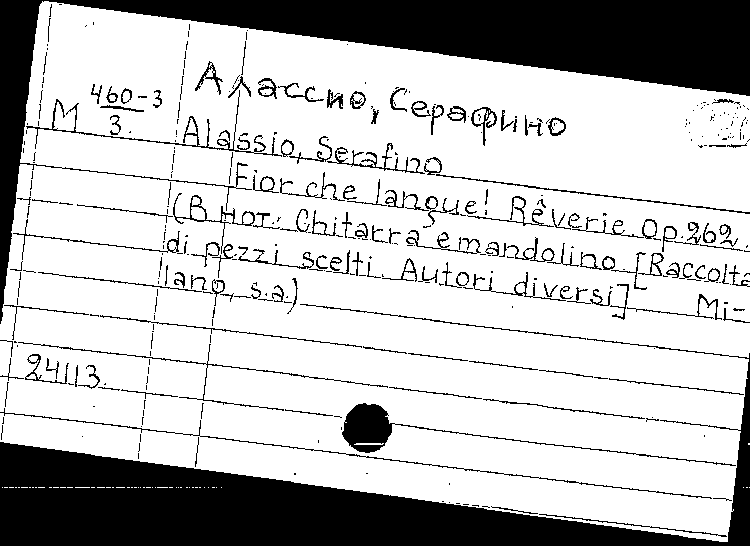 Алассио, Серафино
M 460-3
3.
Alassio, Serafino
Fior che langue! Rêverie. Op. 262.
(В нот.: Chitarra e mandolino [Raccolta
di pezzi scelti. Autori diversi] Mi-
lano, s.a.)
24113.